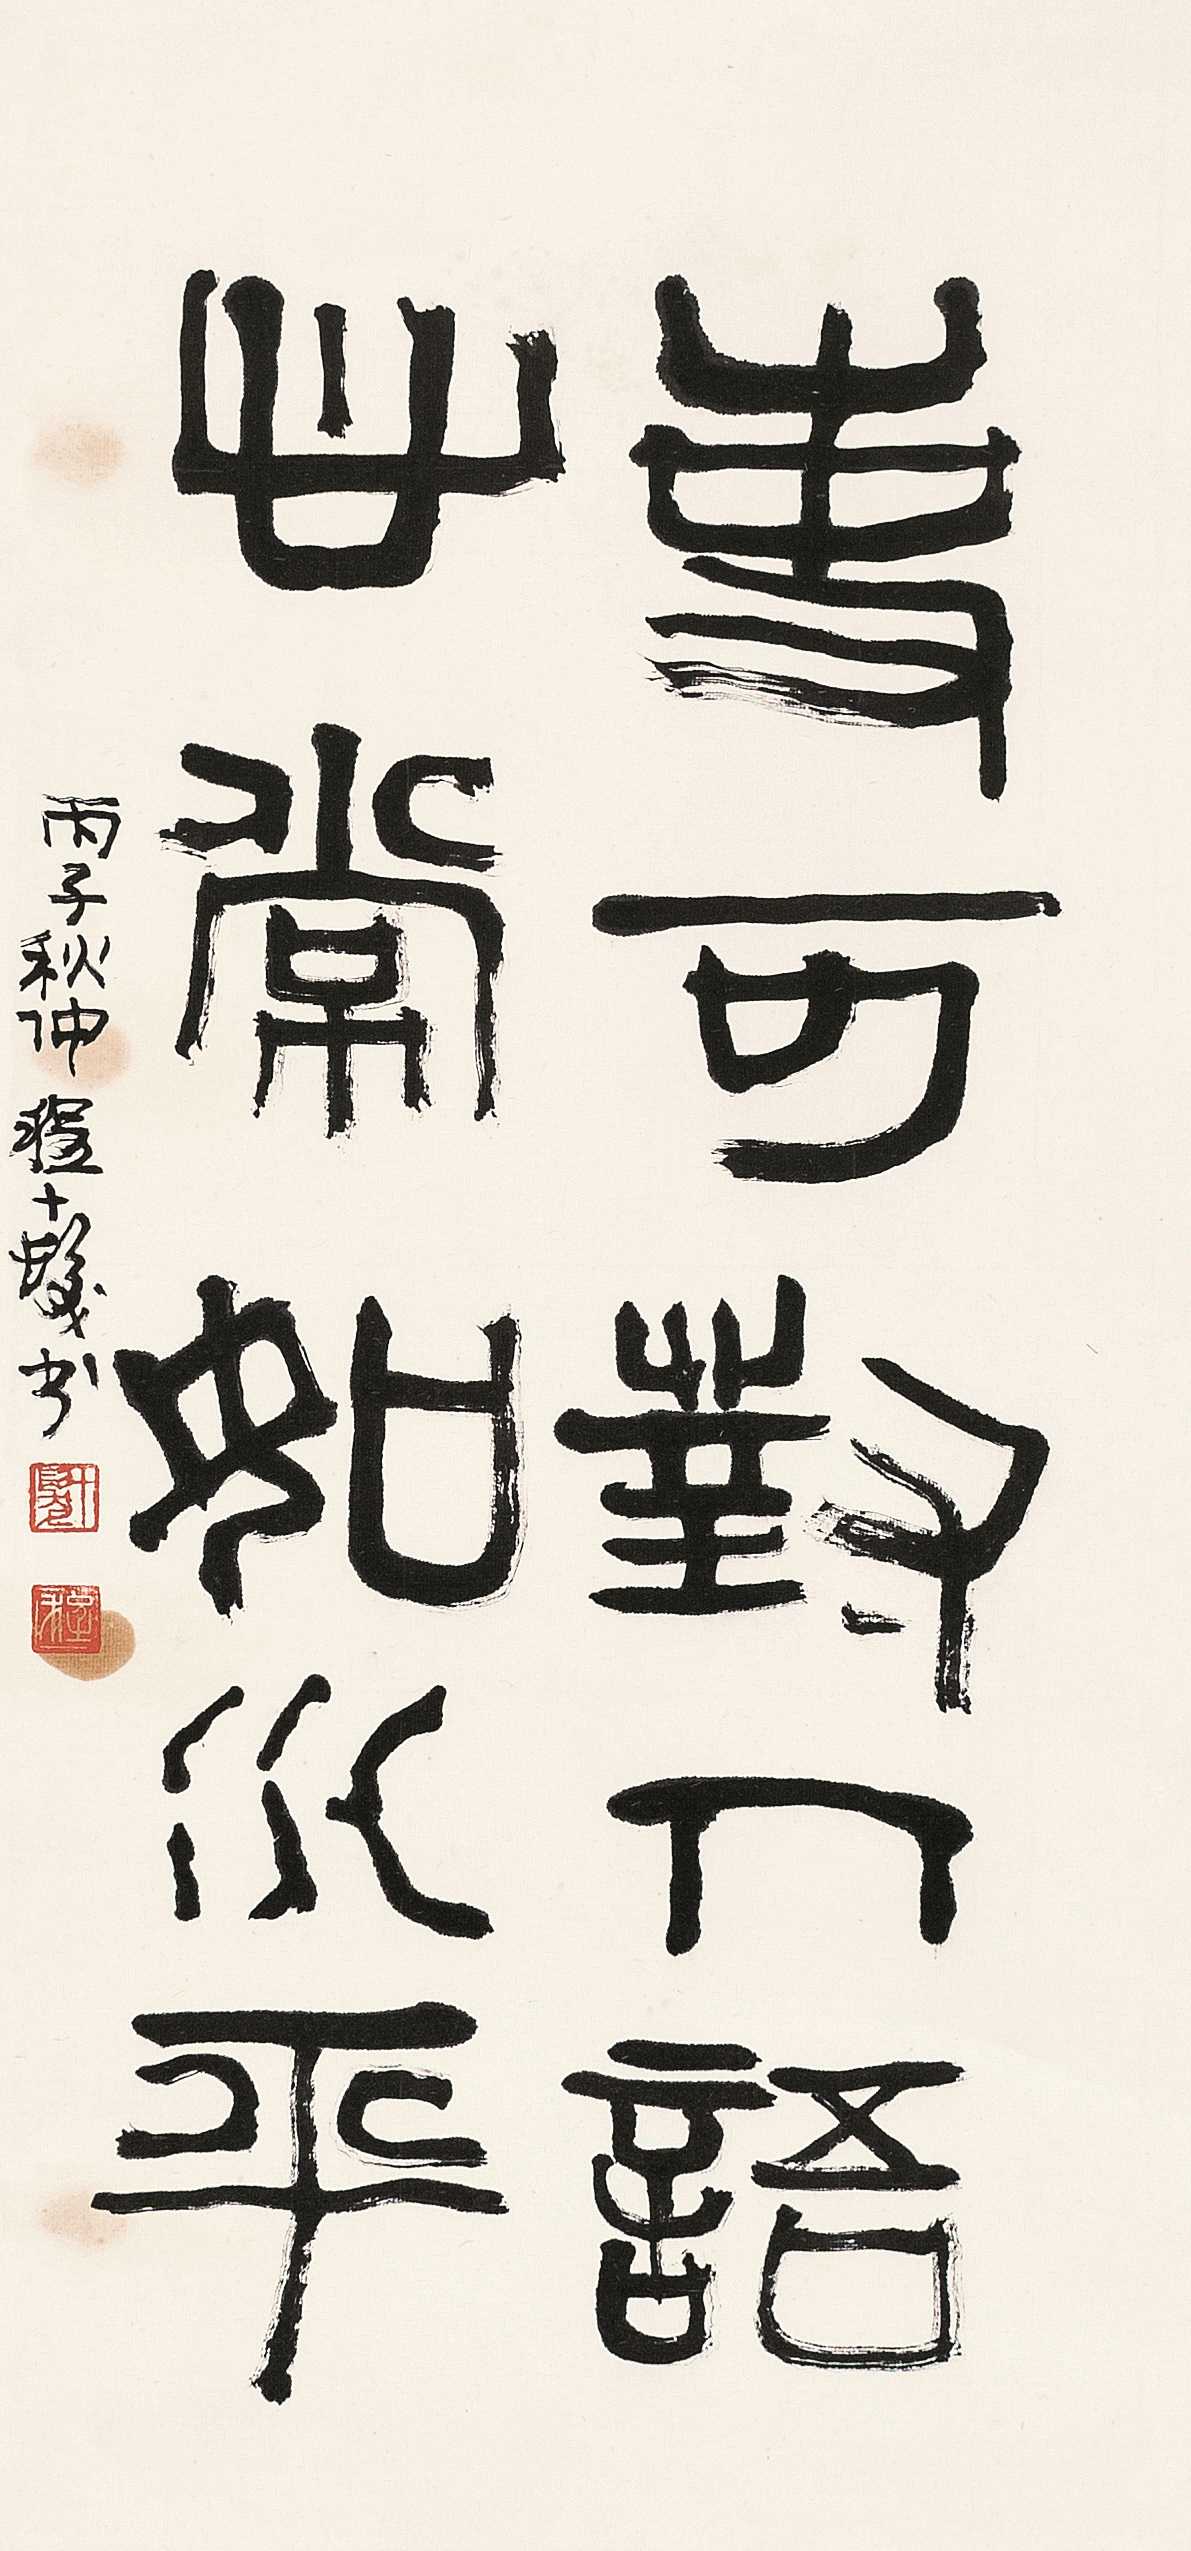 事可對人語
心常如水平
丙子秋仲程十髮书
十髮
程